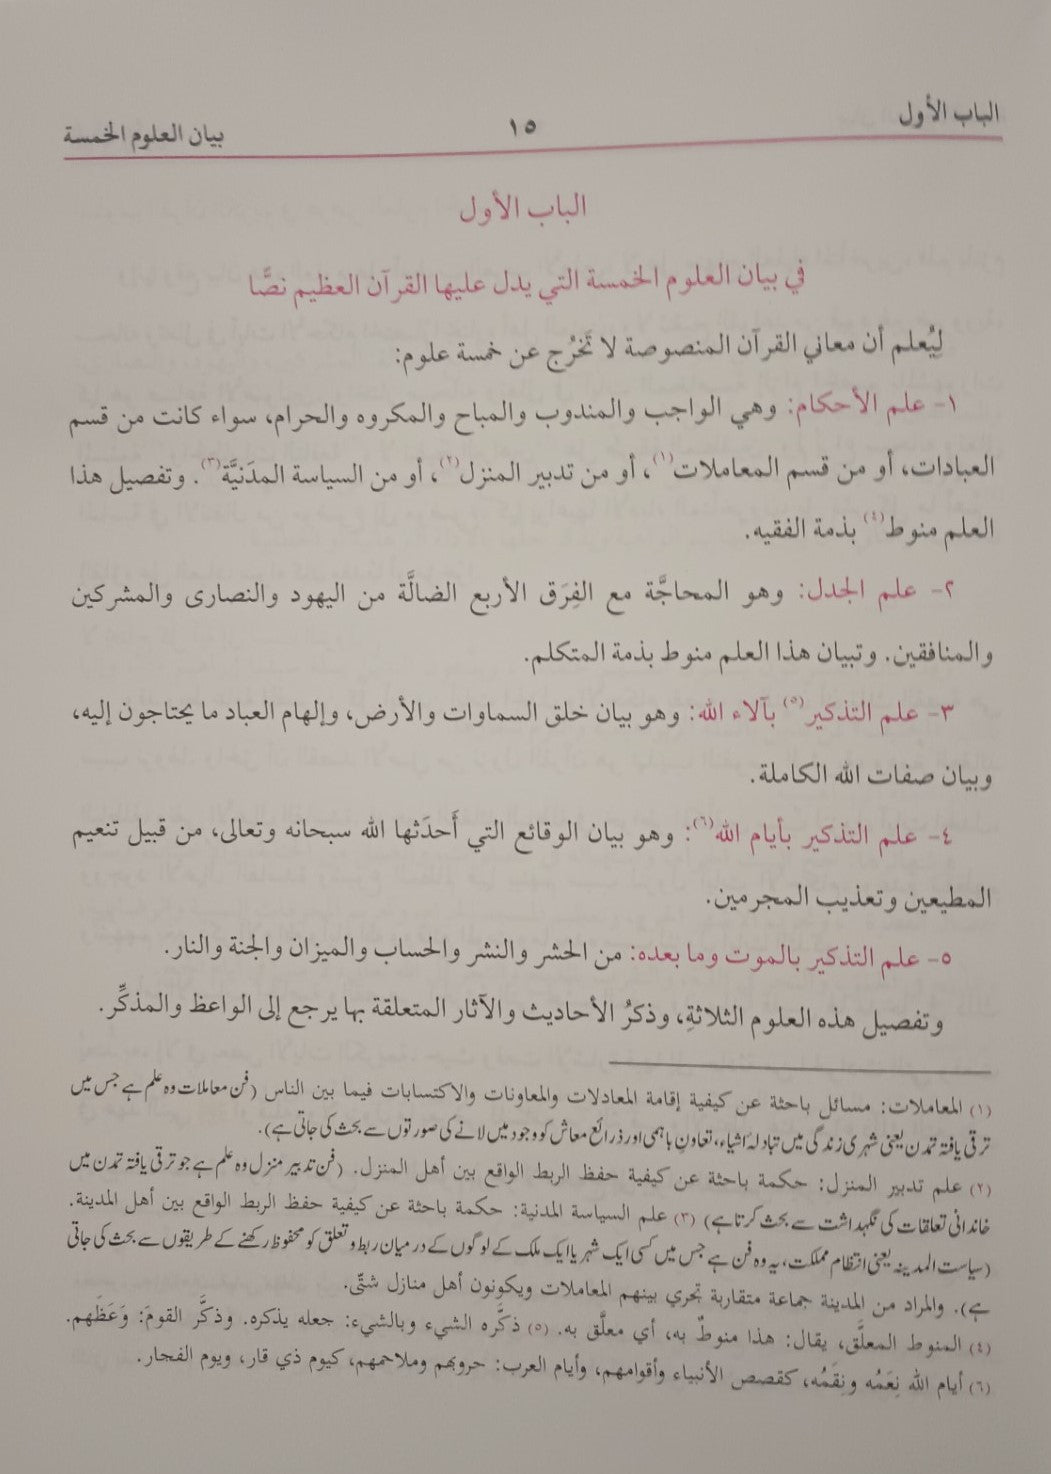 الباب الأول
١٥
بيان العلوم الخمسة
الباب الأول
في بيان العلوم الخمسة التي يدل عليها القرآن العظيم نصًّا
لِيُعلم أن معاني القرآن المنصوصة لا تَخرُج عن خمسة علوم:
١- علم الأحكام: وهي الواجب والمندوب والمباح والمكروه والحرام، سواء كانت من قسم
العبادات، أو من قسم المعاملات(١)، أو من تدبير المنزل(٢)، أو من السياسة المدَنيَّة(٣). وتفصيل هذا
العلم منوط(٤) بذمة الفقيه.
٢- علم الجدل: وهو المحاجَّة مع الفِرَق الأربع الضالَّة من اليهود والنصارى والمشركين
والمنافقين. وتبيان هذا العلم منوط بذمة المتكلم.
٣- علم التذكير(٥) بآلاء الله: وهو بيان خلق السماوات والأرض، وإلهام العباد ما يحتاجون إليه،
وبيان صفات الله الكاملة.
٤- علم التذكير بأيام الله(٦): وهو بيان الوقائع التي أَحدَثها الله سبحانه وتعالى، من قبيل تنعيم
المطيعين وتعذيب المجرمين.
٥- علم التذكير بالموت وما بعده: من الحشر والنشر والحساب والميزان والجنة والنار.
وتفصيل هذه العلوم الثلاثةِ، وذكرُ الأحاديث والآثار المتعلقة بها يرجع إلى الواعظ والمذكِّر.
(١) المعاملات: مسائل باحثة عن كيفية إقامة المعادلات والمعاونات والاكتسابات فيما بين الناس (فن معاملات وہ علم ہے جس میں
ترقی یافتہ تمدن یعنی شہری زندگی میں تبادلۂ اشیاء، تعاون باہمی اور ذرائع معاش کو وجود میں لانے کی صورتوں سے بحث کی جاتی ہے).
(٢) علم تدبير المنزل: حكمة باحثة عن كيفية حفظ الربط الواقع بين أهل المنزل. (فن تدبیر منزل وہ علم ہے جو ترقی یافتہ تمدن میں
خاندانی تعلقات کی نگہداشت سے بحث کرتا ہے) (٣) علم السياسة المدنية: حكمة باحثة عن كيفية حفظ الربط الواقع بين أهل المدينة.
(سیاست المدینہ یعنی انتظام مملکت، یہ وہ فن ہے جس میں کسی ایک شہر یا ایک ملک کے لوگوں کے درمیان ربط و تعلق کو محفوظ رکھنے کے طریقوں سے بحث کی جاتی
ہے). والمراد من المدينة جماعة متقاربة تجري بينهم المعاملات ويكونون أهل منازل شتّى.
(٤) المنوط المعلَّق، يقال: هذا منوطٌ به، أي معلَّق به. (٥) ذكَّره الشيء وبالشيء: جعله يذكره. وذكَّر القومَ: وَعَظَهم.
(٦) أيام الله نِعَمُه ونِقَمُه، كقصص الأنبياء وأقوامهم، وأيام العرب: حروبهم وملاحمهم، كيوم ذي قار، ويوم الفجار.